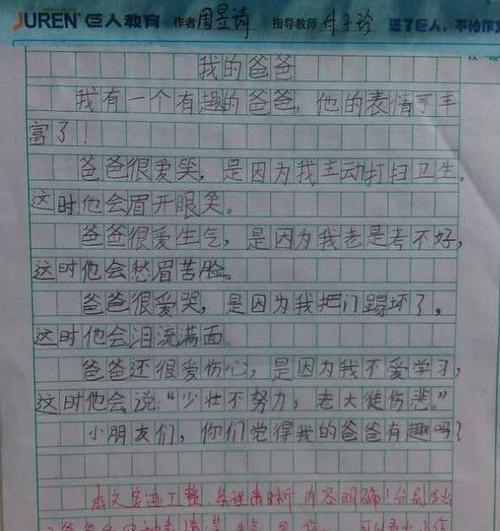 JUREN 巨人教育 作者 周昱诗 指导教师 付子珍 进了巨人,不怕作文
我的爸爸
我有一个有趣的爸爸,他的表情可丰
富了!
爸爸很爱笑,是因为我主动打扫卫生,
这时他会眉开眼笑。
爸爸很爱生气,是因为我老是考不好,
这时他会愁眉苦脸。
爸爸很爱哭,是因为我把门踢坏了,
这时他会泪流满面.
爸爸还很爱伤心,是因为我不爱学习,
这时他会说:“少壮不努力,老大徒伤悲。”
小朋友们,你们觉得我的爸爸有趣吗?
本文字迹工整,条理清晰,内容明确,分别写出